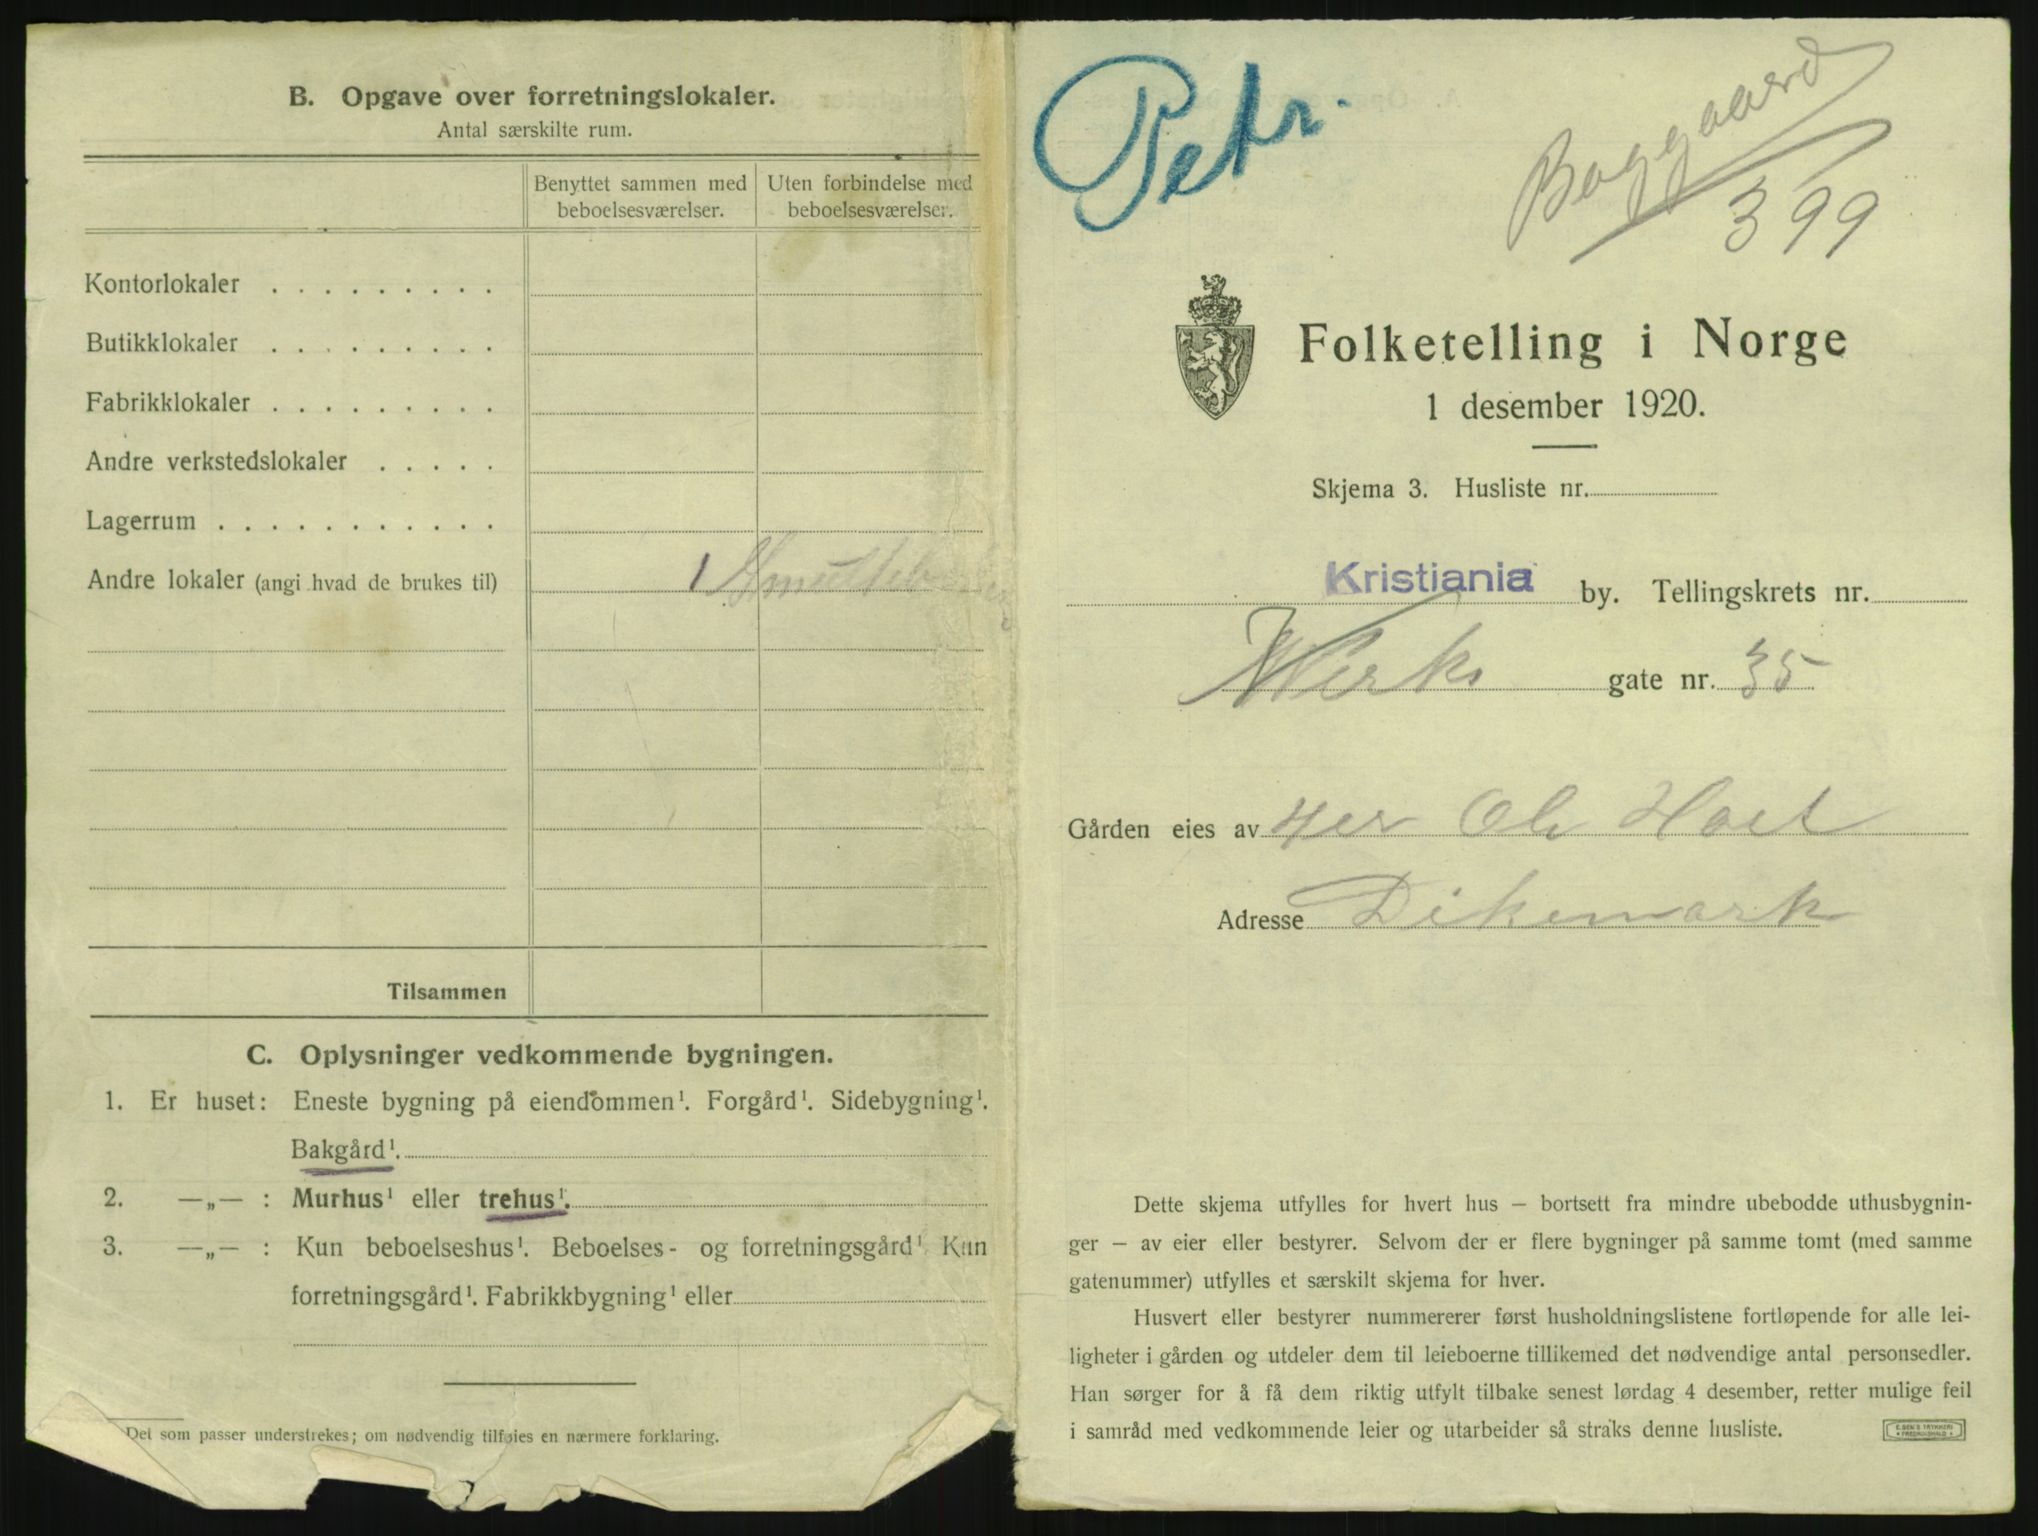 B. Opgave over forretningslokaler.
Antal særskilte rum.
Benyttet sammen med beboelsesværelser.
Uten forbindelse med beboelsesværelser.
Kontorlokaler . . . . . . . . .
Butikklokaler . . . . . . . . .
Fabrikklokaler . . . . . . . . .
Andre verkstedslokaler . . . . .
Lagerrum . . . . . . . . . . .
Andre lokaler (angi hvad de brukes til) 1
Tilsammen
C. Oplysninger vedkommende bygningen.
1. Er huset: Eneste bygning på eiendommen¹. Forgård¹. Sidebygning¹.
Bakgård¹.
2. —„— : Murhus¹ eller trehus¹.
3. —„— : Kun beboelseshus¹. Beboelses- og forretningsgård¹. Kun
forretningsgård¹. Fabrikkbygning¹ eller
Det som passer understrekes; om nødvendig tilføies en nærmere forklaring.
Petr.
Baggaard
399
Folketelling i Norge
1 desember 1920.
Skjema 3. Husliste nr.
Kristiania by. Tellingskrets nr.
Werks gate nr. 35
Gården eies av Ole
Adresse Dikemark
Dette skjema utfylles for hvert hus — bortsett fra mindre ubebodde uthusbygnin-
ger — av eier eller bestyrer. Selvom der er flere bygninger på samme tomt (med samme
gatenummer) utfylles et særskilt skjema for hver.
Husvert eller bestyrer nummererer først husholdningslistene fortløpende for alle lei-
ligheter i gården og utdeler dem til leieboerne tillikemed det nødvendige antal personsedler.
Han sørger for å få dem riktig utfylt tilbake senest lørdag 4 desember, retter mulige feil
i samråd med vedkommende leier og utarbeider så straks denne husliste.